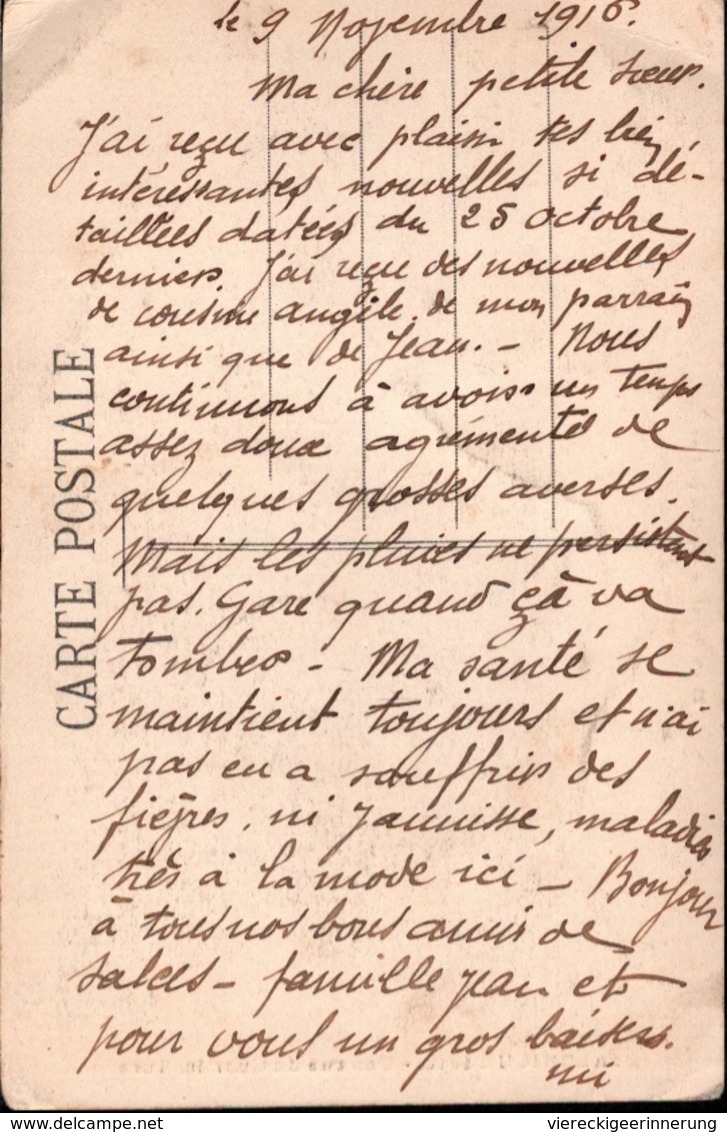 le 9 Novembre 1916.
Ma chère petite soeur.
J'ai reçu avec plaisir tes bien
intéressantes nouvelles si dé-
taillées datées du 25 octobre
dernier. J'ai reçu des nouvelles
de cousine angèle, de mon parrain
ainsi que de Jean. - Nous
continuons à avoir un temps
assez doux agrémenté de
quelques grosses averses.
Mais les pluies ne persistent
pas. Gare quand çà va
tomber - Ma santé se
maintient toujours et n'ai
pas eu a souffrir des
fièvres, ni jaunisse, maladies
très à la mode ici - Bonjour
à tous nos bons amis de
- famille Jean et
pour vous un gros baisers.
CARTE POSTALE
viereckigeerinnerung